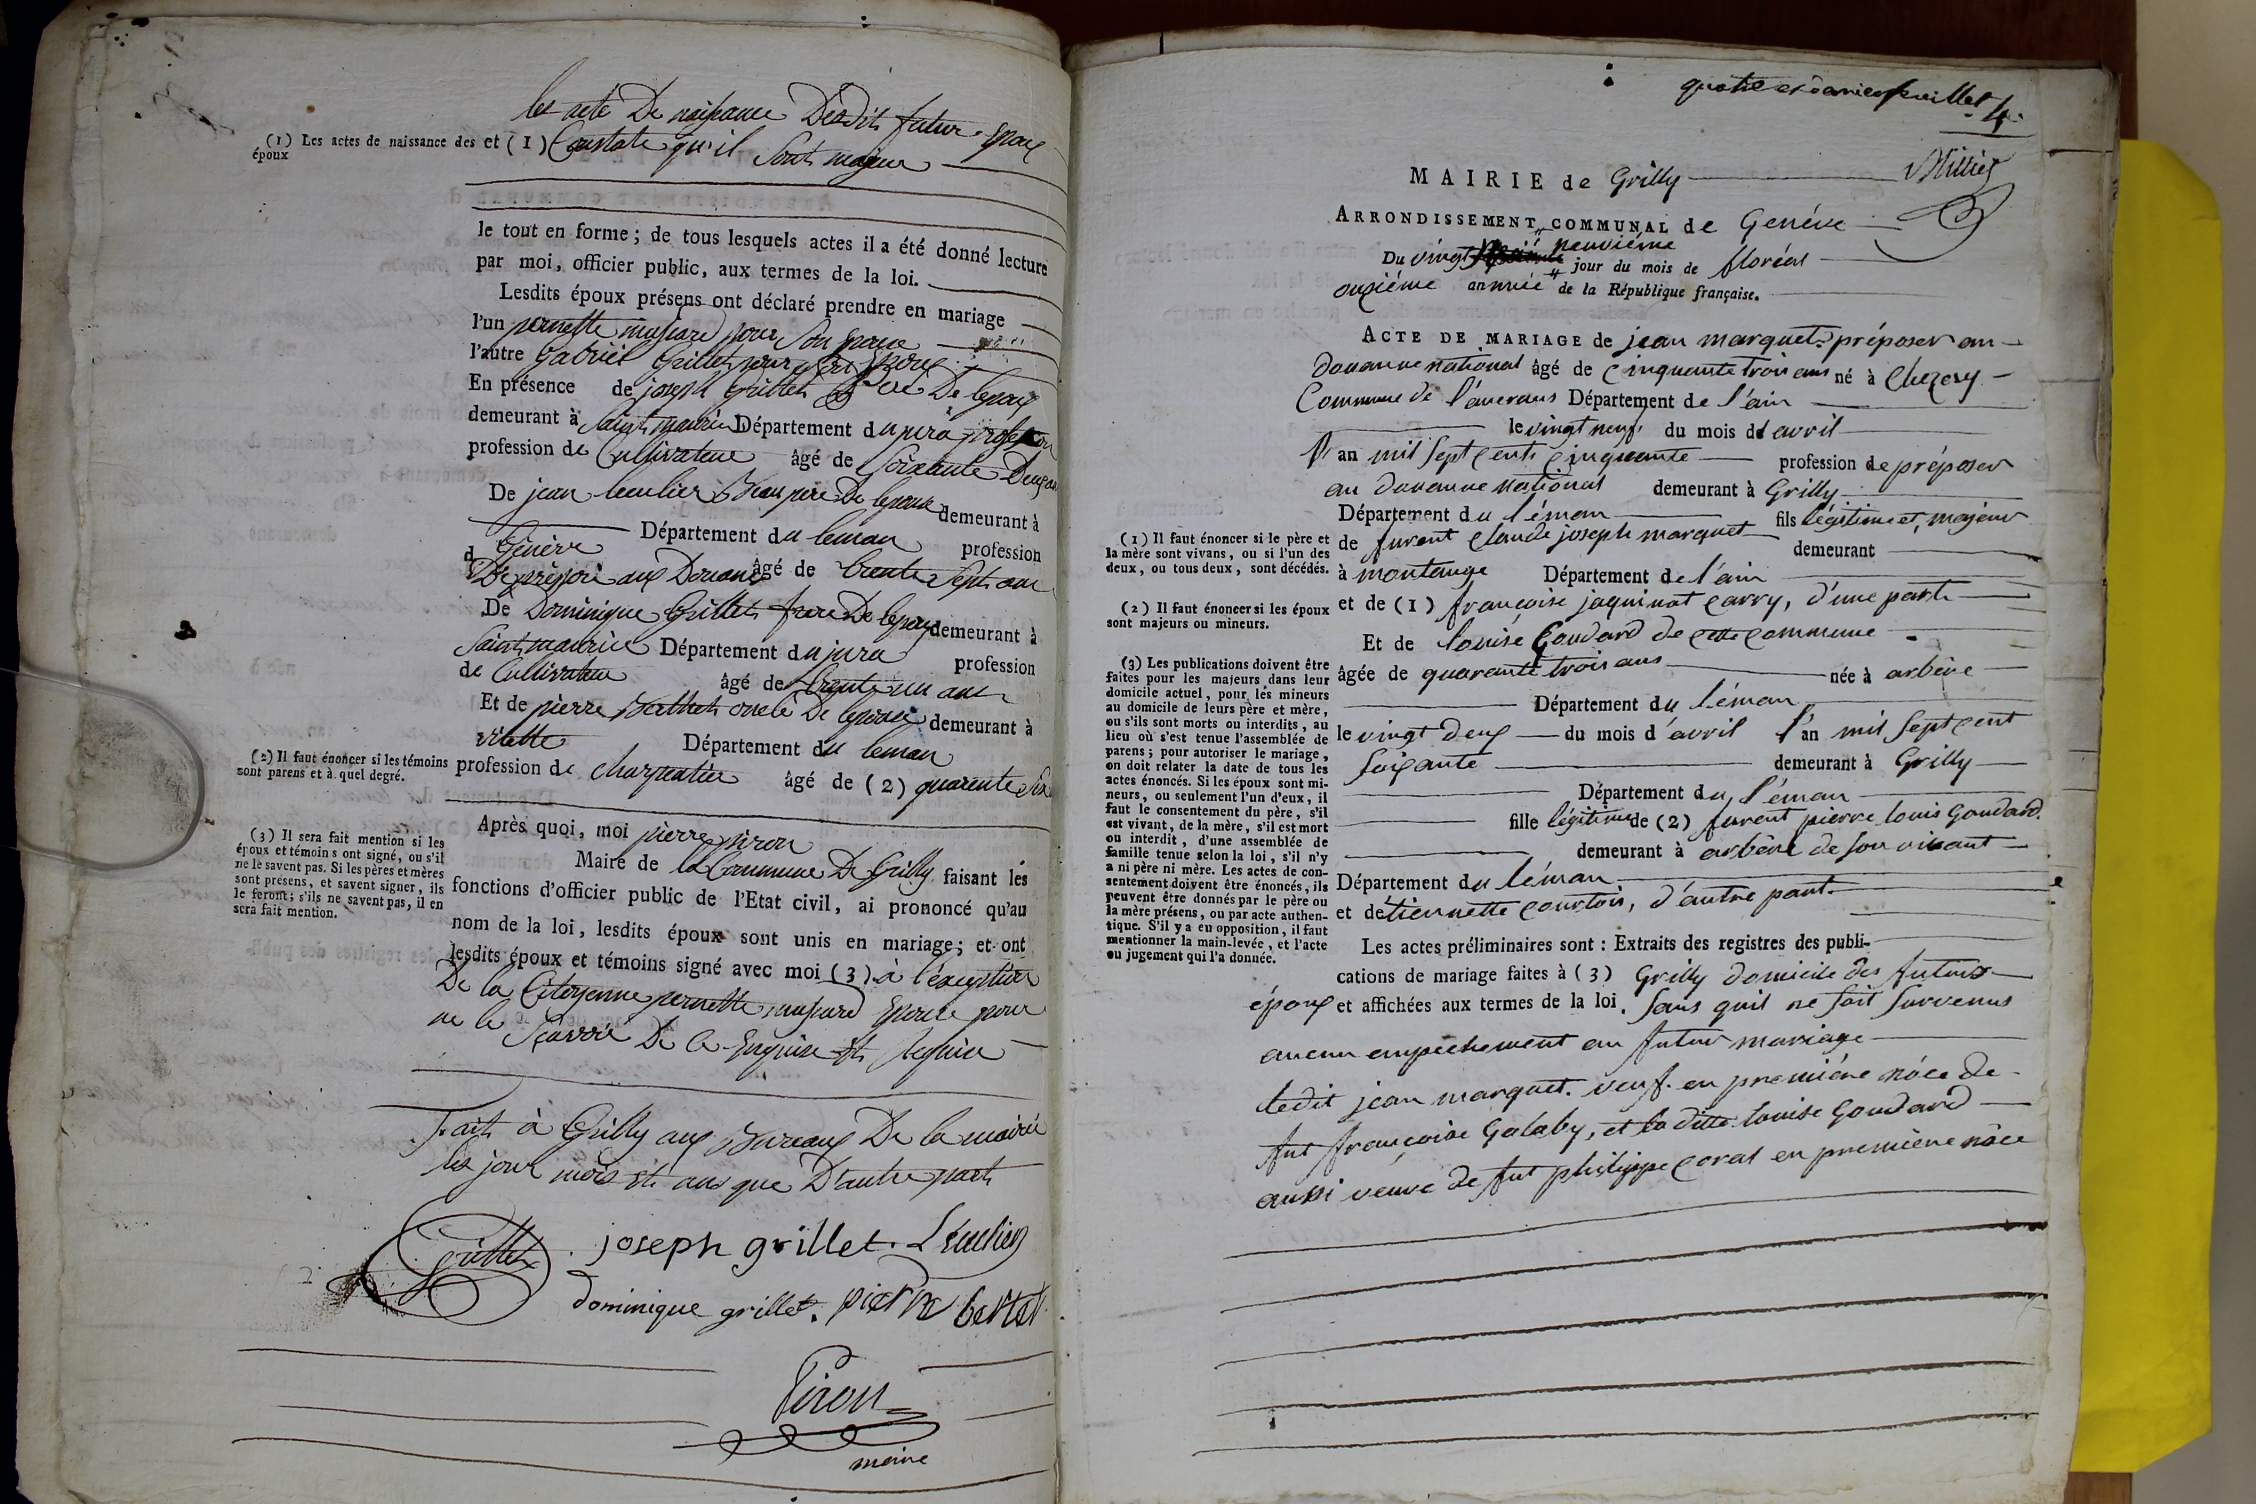 les acte De naissance Desdits futur Epoux
(1) Les actes de naissance des époux
et (1) Constate qu'il Sont majeur
le tout en forme ; de tous lesquels actes il a été donné lecture
par moi, officier public, aux termes de la loi.
Lesdits époux présens ont déclaré prendre en mariage
l'un pernette pour Son Epouse
l'autre Gabriel Grillet pour Son Epoux
En présence de joseph Grillet Pere De lepoux
demeurant à Saint maurice Département du jura profession
profession de Cultivateur âgé de Soixante Deux ans
De jean leculier Beau pere De lepouse demeurant à
Genève Département du leman profession
de préposé aux Douane âgé de trente Sept ans
De Dominique Grillet frere De lepoux demeurant à
Saint maurice Département du jura profession
de Cultivateur âgé de trente un ans
Et de pierre Berthet oncle De lepouse demeurant à
Département du leman
(2) Il faut énoncer si les témoins
sont parens et à quel degré.
profession de charpentier âgé de (2) quarente Six
Après quoi, moi pierre piron
Maire de la Commune De Grilly faisant les
fonctions d'officier public de l'Etat civil, ai prononcé qu'au
nom de la loi, lesdits époux sont unis en mariage ; et ont
lesdits époux et témoins signé avec moi (3) à l'éxeption
(3) Il sera fait mention si les
époux et témoins ont signé, ou s'il
ne le savent pas. Si les pères et mères
sont présens, et savent signer, ils
le feront ; s'ils ne savent pas, il en
sera fait mention.
De la Citoyenne pernette Epouse pour
ne le Scavoir De ce Enquise Et Requise
Fait à Grilly aux Bureaux De la mairie
les jour mois Et ans que D'autre part
Grillet joseph grillet. Leculier
dominique grillet. pierre bertet
Piron
maire
quatre et dernier feuillet
4.
MAIRIE de Grilly
ARRONDISSEMENT COMMUNAL de Genéve
neuviéme
Du vingt jour du mois de floréal
onziéme année de la République française.
ACTE DE MARIAGE de jean marquet préposer au
douanne national âgé de cinquante trois ans né à Chezery
Commune de Département de l'ain
le vingt neuf du mois d'avril
l'an mil sept cents cinquante profession de préposer
au douanne national demeurant à Grilly
Département du léman fils légitime et majeur
de furent claude joseph marquet demeurant
à montange Département de l'ain
et de (1) francoise jaquinot carry, d'une part
(1) Il faut énoncer si le père et
la mère sont vivans, ou si l'un des
deux, ou tous deux, sont décédés.
(2) Il faut énoncer si les époux
sont majeurs ou mineurs.
(3) Les publications doivent être
faites pour les majeurs dans leur
domicile actuel, pour les mineurs
au domicile de leurs père et mère,
ou s'ils sont morts ou interdits, au
lieu où s'est tenue l'assemblée de
parens ; pour autoriser le mariage,
on doit relater la date de tous les
actes énoncés. Si les époux sont mi-
neurs, ou seulement l'un d'eux, il
faut le consentement du père, s'il
est vivant, de la mère, s'il est mort
ou interdit, d'une assemblée de
famille tenue selon la loi, s'il n'y
a ni père ni mère. Les actes de con-
sentement doivent être énoncés, ils
peuvent être donnés par le père ou
la mère présens, ou par acte authen-
tique. S'il y a eu opposition, il faut
mentionner la main-levée, et l'acte
ou jugement qui l'a donnée.
Et de louise Goudard de cette commune
âgée de quarante trois ans née à arbère
Département du léman
le vingt deux du mois d'avril l'an mil sept cent
soixante demeurant à Grilly
Département du léman
fille légitime de (2) furent pierre louis Goudard
demeurant à arbère de son vivant
Département du léman
et de tiennette courtois, d'autre part.
Les actes préliminaires sont : Extraits des registres des publi-
cations de mariage faites à (3) Grilly domicile des futurs
époux et affichées aux termes de la loi. Sans quil ne soit Survenus
aucun empechement au futur mariage
ledit jean marquet veuf en premiére nôce de
fut françoise Galaby, et la ditte louise Goudard
aussi veuve de fut philippe coral en première nôce